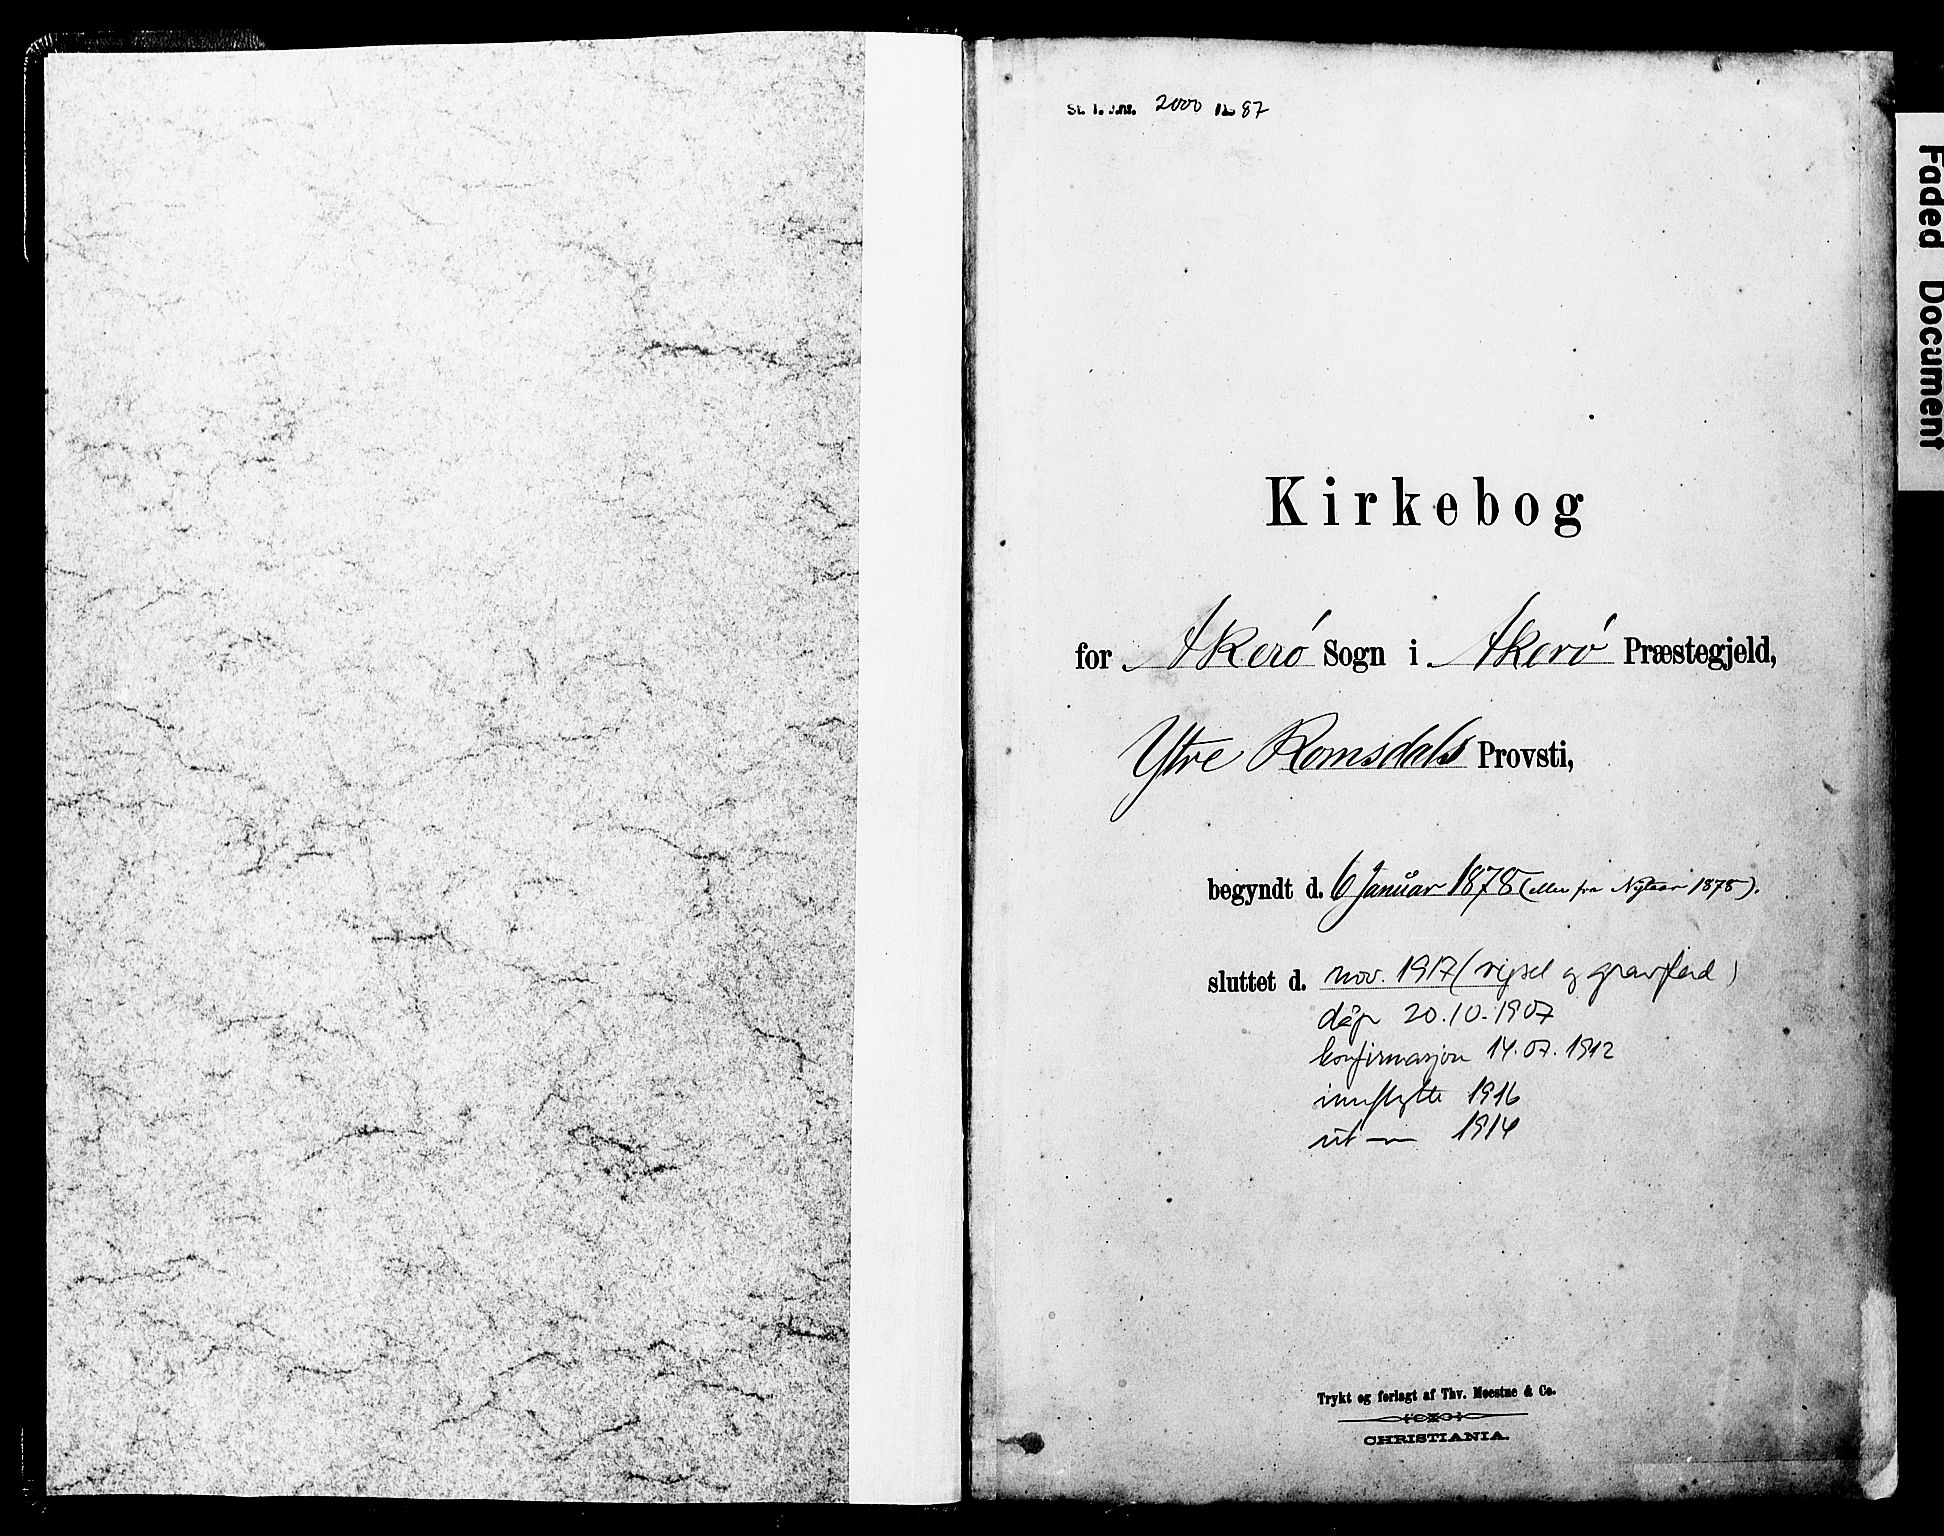 St. 1. J.nr. 2000 19 87
Kirkebog
for Akerö Sogn i Akerö Præstegjeld,
Ytre Romsdals Provsti,
begyndt d. 6 Januar 1878 (eller fra Nytaar 1878).
sluttet d. nov. 1917 (vigsel og gravferd)
dåp 20.10.1907
konfirmasjon 14.07.1912
innflytte 1916
ut — 1914
Trykt og forlagt af Thv. Moestue & Co.
CHRISTIANIA.
Faded Document